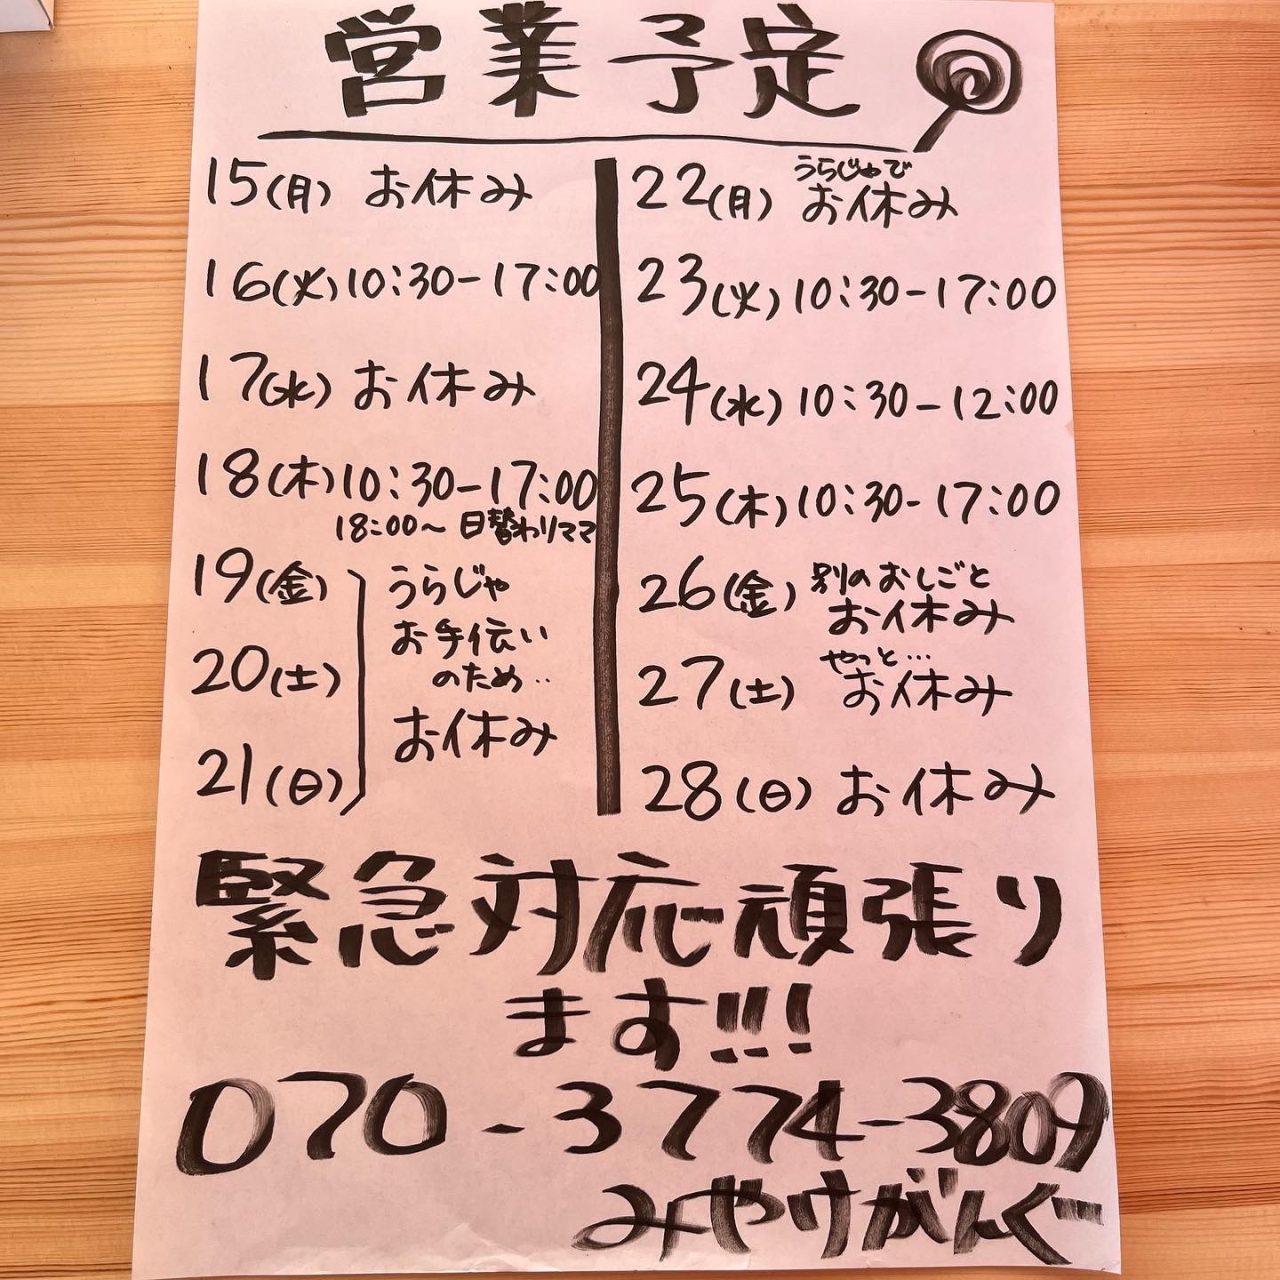 営業予定
15(月) お休み
16(火) 10:30-17:00
17(水) お休み
18(木) 10:30-17:00
18:00〜 日替わりママ
19(金)
20(土)
21(日)
うらじゃ
お手伝い
のため‥
お休み
22(月) うらじゃで
お休み
23(火) 10:30-17:00
24(水) 10:30-12:00
25(木) 10:30-17:00
26(金) 別のおしごと
お休み
27(土) やっと…
お休み
28(日) お休み
緊急対応頑張り
ます!!!
070-3774-3809
みやけがんぐー